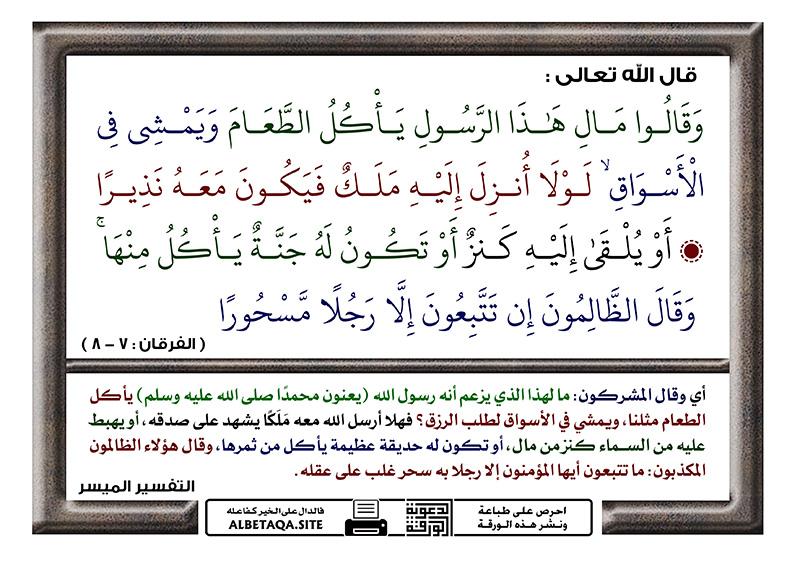 قال الله تعالى :
وَقَالُـوا مَـالِ هَـٰـذَا الرَّسُـولِ يَـأْكُـلُ الطَّعَـامَ وَيَمْـشِـى فِى
الْأَسْـوَاقِ ۙ لَـوْلَا أُنـزِلَ إِلَيْـهِ مَلَـكٌ فَيَكُـونَ مَعَـهُ نَذِيـرًا
أَوْ يُلْـقَىٰ إِلَيْـهِ كَـنزٌ أَوْ تَكُـونُ لَهُ جَنَّـةٌ يَـأْكُـلُ مِنْهَـا ۚ
وَقَالَ الظَّالِمُونَ إِن تَتَّبِعُونَ إِلَّا رَجُلًا مَّسْحُورًا
( الفرقان : ٧ - ٨ )
أي وقال المشركون: ما لهذا الذي يزعم أنه رسول الله (يعنون محمدًا صلى الله عليه وسلم) يأكل
الطعام مثلنا، ويمشي في الأسواق لطلب الرزق؟ فهلا أرسل الله معه مَلَكًا يشهد على صدقه، أو يهبط
عليه من السماء كنز من مال، أو تكون له حديقة عظيمة يأكل من ثمرها، وقال هؤلاء الظالمون
المكذبون: ما تتبعون أيها المؤمنون إلا رجلا به سحر غلب على عقله.
التفسير الميسر
احرص على طباعة
ونشر هذه الورقة
الورقة
الدعوية
فالدال على الخير كفاعله
ALBETAQA.SITE